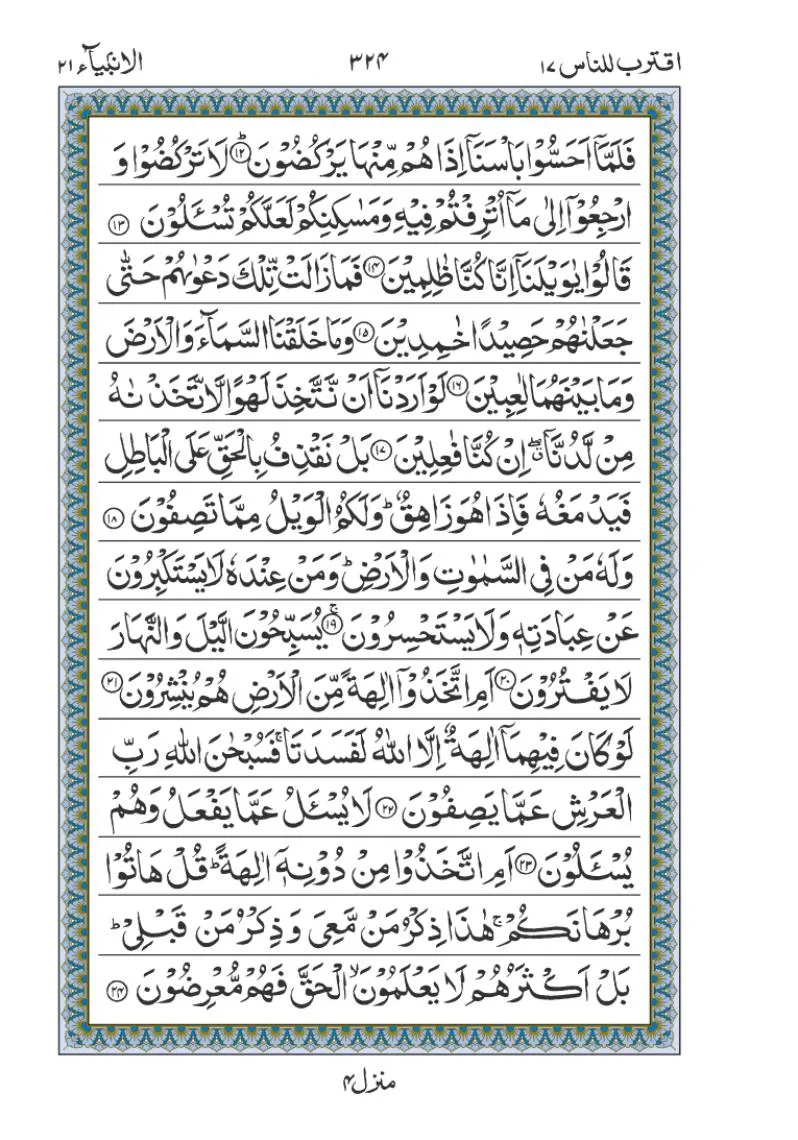 اقترب للناس ۱۷ ۳۲۴ الانبیآء ۲۱
فَلَمَّاۤ اَحَسُّوْا بَاْسَنَاۤ اِذَا هُمْ مِّنْهَا يَرْكُضُوْنَؕ۝۱۲ لَا تَرْكُضُوْا وَ
ارْجِعُوْۤا اِلٰى مَاۤ اُتْرِفْتُمْ فِيْهِ وَمَسٰكِنِكُمْ لَعَلَّكُمْ تُسْـَٔلُوْنَ۝۱۳
قَالُوْا يٰوَيْلَنَاۤ اِنَّا كُنَّا ظٰلِمِيْنَ۝۱۴ فَمَا زَالَتْ تِّلْكَ دَعْوٰىهُمْ حَتّٰى
جَعَلْنٰهُمْ حَصِيْدًا خٰمِدِيْنَ۝۱۵ وَمَا خَلَقْنَا السَّمَآءَ وَالْاَرْضَ
وَمَا بَيْنَهُمَا لٰعِبِيْنَ۝۱۶ لَوْ اَرَدْنَاۤ اَنْ نَّتَّخِذَ لَهْوًا لَّاتَّخَذْنٰهُ
مِنْ لَّدُنَّاۤ ۖ اِنْ كُنَّا فٰعِلِيْنَ۝۱۷ بَلْ نَقْذِفُ بِالْحَقِّ عَلَى الْبَاطِلِ
فَيَدْمَغُهٗ فَاِذَا هُوَ زَاهِقٌؕ وَلَكُمُ الْوَيْلُ مِمَّا تَصِفُوْنَ۝۱۸
وَلَهٗ مَنْ فِى السَّمٰوٰتِ وَالْاَرْضِؕ وَمَنْ عِنْدَهٗ لَا يَسْتَكْبِرُوْنَ
عَنْ عِبَادَتِهٖ وَلَا يَسْتَحْسِرُوْنَۚ۝۱۹ يُسَبِّحُوْنَ الَّيْلَ وَالنَّهَارَ
لَا يَفْتُرُوْنَ۝۲۰ اَمِ اتَّخَذُوْۤا اٰلِهَةً مِّنَ الْاَرْضِ هُمْ يُنْشِرُوْنَ۝۲۱
لَوْ كَانَ فِيْهِمَاۤ اٰلِهَةٌ اِلَّا اللّٰهُ لَفَسَدَتَاۚ فَسُبْحٰنَ اللّٰهِ رَبِّ
الْعَرْشِ عَمَّا يَصِفُوْنَ۝۲۲ لَا يُسْـَٔلُ عَمَّا يَفْعَلُ وَهُمْ
يُسْـَٔلُوْنَ۝۲۳ اَمِ اتَّخَذُوْا مِنْ دُوْنِهٖۤ اٰلِهَةًؕ قُلْ هَاتُوْا
بُرْهَانَكُمْۚ هٰذَا ذِكْرُ مَنْ مَّعِىَ وَذِكْرُ مَنْ قَبْلِىْؕ
بَلْ اَكْثَرُهُمْ لَا يَعْلَمُوْنَۙ الْحَقَّ فَهُمْ مُّعْرِضُوْنَ۝۲۴
منزل۴